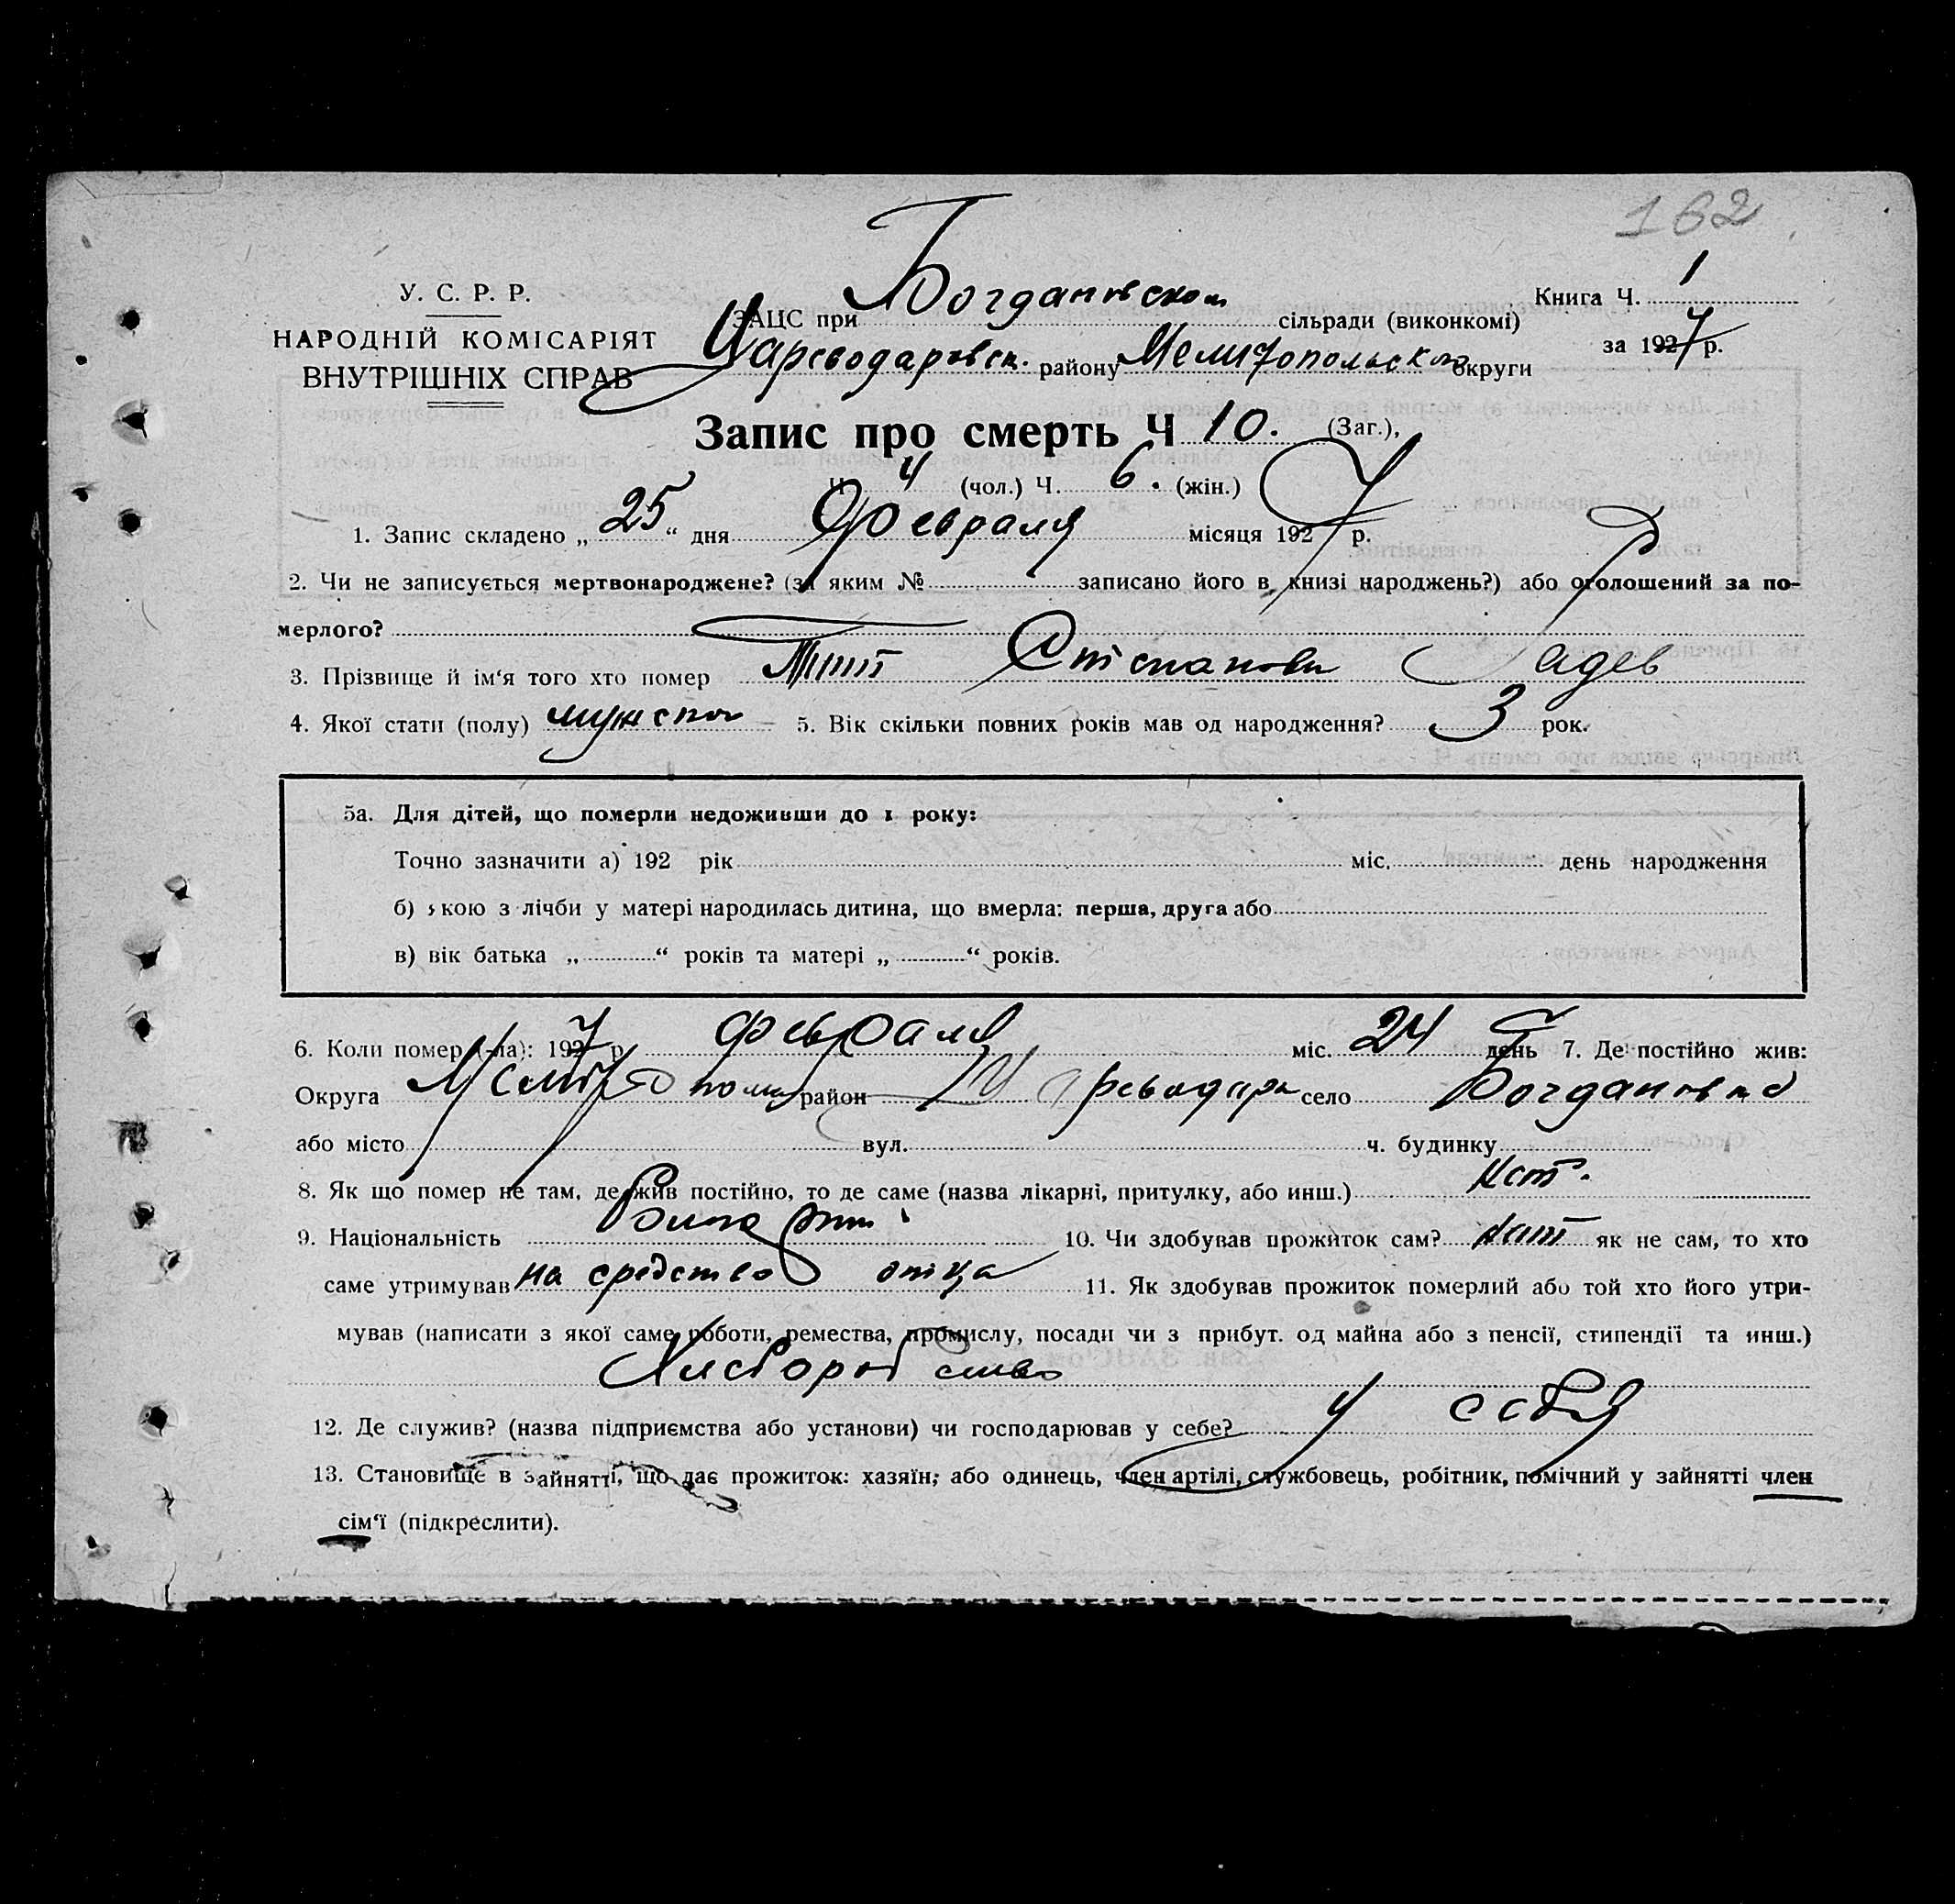 162
У. С. Р. Р.
НАРОДНІЙ КОМІСАРІЯТ
ВНУТРІШНІХ СПРАВ
ЗАЦС при Богдановском сільради (виконкомі)
Цареводаровск. району Мелитопольского округи
Книга Ч. 1
за 1927 р.
Запис про смерть Ч 10. (Заг.),
Ч 4 (чол.) Ч. 6. (жін.)
1. Запис складено „ 25 “ дня Февраля місяця 1927 р.
2. Чи не записується мертвонароджене? (за яким № записано його в книзі народжень?) або оголошений за по-
мерлого?
3. Прізвище й ім‘я того хто помер Тит Степанови
4. Якої стати (полу) мужской 5. Вік скільки повних років мав од народження? 3 рок.
5а. Для дітей, що померли недоживши до 1 року:
Точно зазначити а) 192 рік міс. день народження
б) якою з лічби у матері народилась дитина, що вмерла: перша, друга або
в) вік батька „ “ років та матері „ “ років.
6. Коли помер (-ла): 1927 р. февраля міс. 24 день 7. Де постійно жив:
Округа Мелитополь район Цареводара село Богдановка
або місто вул. ч. будинку
8. Як що помер не там, де жив постійно, то де саме (назва лікарні, притулку, або инш.) Нет.
9. Національність 10. Чи здобував прожиток сам? Нет як не сам, то хто
саме утримував на средство отца 11. Як здобував прожиток померлий або той хто його утри-
мував (написати з якої саме роботи, ремества, промислу, посади чи з прибут. од майна або з пенсії, стипендії та инш.)
Хлеборобство
12. Де служив? (назва підприємства або установи) чи господарював у себе? у себя
13. Становище в зайнятті, що дає прожиток: хазяїн; або одинець, член артілі, службовець, робітник, помічний у зайнятті член
сім‘ї (підкреслити).